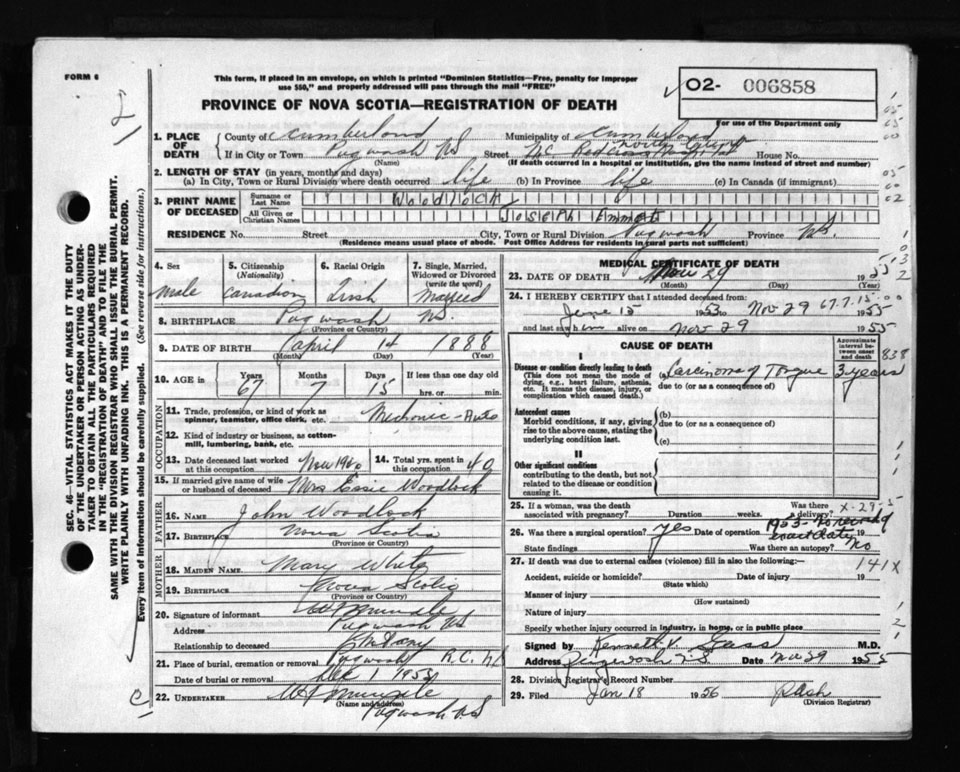 FORM 6
This form, if placed in an envelope, on which is printed "Dominion Statistics—Free, penalty for improper
use $50," and properly addressed will pass through the mail "FREE"
O2- 006858
For use of the Department only
PROVINCE OF NOVA SCOTIA—REGISTRATION OF DEATH
1. PLACE OF DEATH
County of Cumberland Municipality of Cumberland
North
If in City or Town Pugwash NS Street Red Cross House No.
(Name) (If death occurred in a hospital or institution, give the name instead of street and number)
2. LENGTH OF STAY (in years, months and days)
(a) In City, Town or Rural Division where death occurred life (b) In Province life (c) In Canada (if immigrant)
3. PRINT NAME OF DECEASED
Surname or Last Name Woodlock
All Given or Christian Names Joseph Emmett
RESIDENCE No. Street City, Town or Rural Division Pugwash Province NS.
(Residence means usual place of abode. Post Office Address for residents in rural parts not sufficient)
4. Sex male
5. Citizenship (Nationality) Canadian
6. Racial Origin Irish
7. Single, Married, Widowed or Divorced (write the word) Married
8. BIRTHPLACE Pugwash NS.
(Province or Country)
9. DATE OF BIRTH April 14 1888
(Month) (Day) (Year)
10. AGE in Years 67 Months 7 Days 15 If less than one day old hrs. or min.
OCCUPATION
11. Trade, profession, or kind of work as spinner, teamster, office clerk, etc. Mechanic - Auto
12. Kind of industry or business, as cotton-mill, lumbering, bank, etc.
13. Date deceased last worked at this occupation
14. Total yrs. spent in this occupation 40
15. If married give name of wife or husband of deceased Mrs Essie Woodlock
FATHER
16. NAME John Woodlock
17. BIRTHPLACE Nova Scotia
(Province or Country)
MOTHER
18. MAIDEN NAME Mary White
19. BIRTHPLACE Nova Scotia
(Province or Country)
20. Signature of informant
Address Pugwash NS
Relationship to deceased
21. Place of burial, cremation or removal Pugwash R.C.
Date of burial or removal Dec 1 1955
22. UNDERTAKER
(Name and address)
Pugwash NS
MEDICAL CERTIFICATE OF DEATH
23. DATE OF DEATH Nov 29 1955
(Month) (Day)
24. I HEREBY CERTIFY that I attended deceased from:
June 15 1953 to Nov 29 1955
67.7.15
and last saw him alive on Nov 29 1955
CAUSE OF DEATH
Approximate interval between onset and death
838
I
Disease or condition directly leading to death
(This does not mean the mode of dying, e.g., heart failure, asthenia, etc. It means the disease, injury, or complication which caused death.)
(a) Carcinoma of Tongue 3 years
due to (or as a consequence of)
Antecedent causes
Morbid conditions, if any, giving rise to the above cause, stating the underlying condition last.
(b)
due to (or as a consequence of)
(c)
II
Other significant conditions
contributing to the death, but not related to the disease or condition causing it.
25. If a woman, was the death associated with pregnancy? Duration weeks. Was there a delivery?
X-29-5
26. Was there a surgical operation? yes Date of operation 1953 - no record of exact date
State findings Was there an autopsy? No
27. If death was due to external causes (violence) fill in also the following:—
141X
Accident, suicide or homicide? Date of injury 19
(State which)
Manner of injury
(How sustained)
Nature of injury
Specify whether injury occurred in industry, in home, or in public place
Signed by Kenneth V. Gass M.D.
Address Pugwash N.S Date Nov 29 1955
28. Division Registrar's Record Number
29. Filed Jan 18 1956
(Division Registrar)
SEC. 46—VITAL STATISTICS ACT MAKES IT THE DUTY
OF THE UNDERTAKER OR PERSON ACTING AS UNDER-
TAKER TO OBTAIN ALL THE PARTICULARS REQUIRED
IN THE "REGISTRATION OF DEATH" AND TO FILE THE
SAME WITH THE DIVISION REGISTRAR WHO SHALL ISSUE THE BURIAL PERMIT.
WRITE PLAINLY WITH UNFADING INK. THIS IS A PERMANENT RECORD.
Every item of information should be carefully supplied. (See reverse side for instructions.)